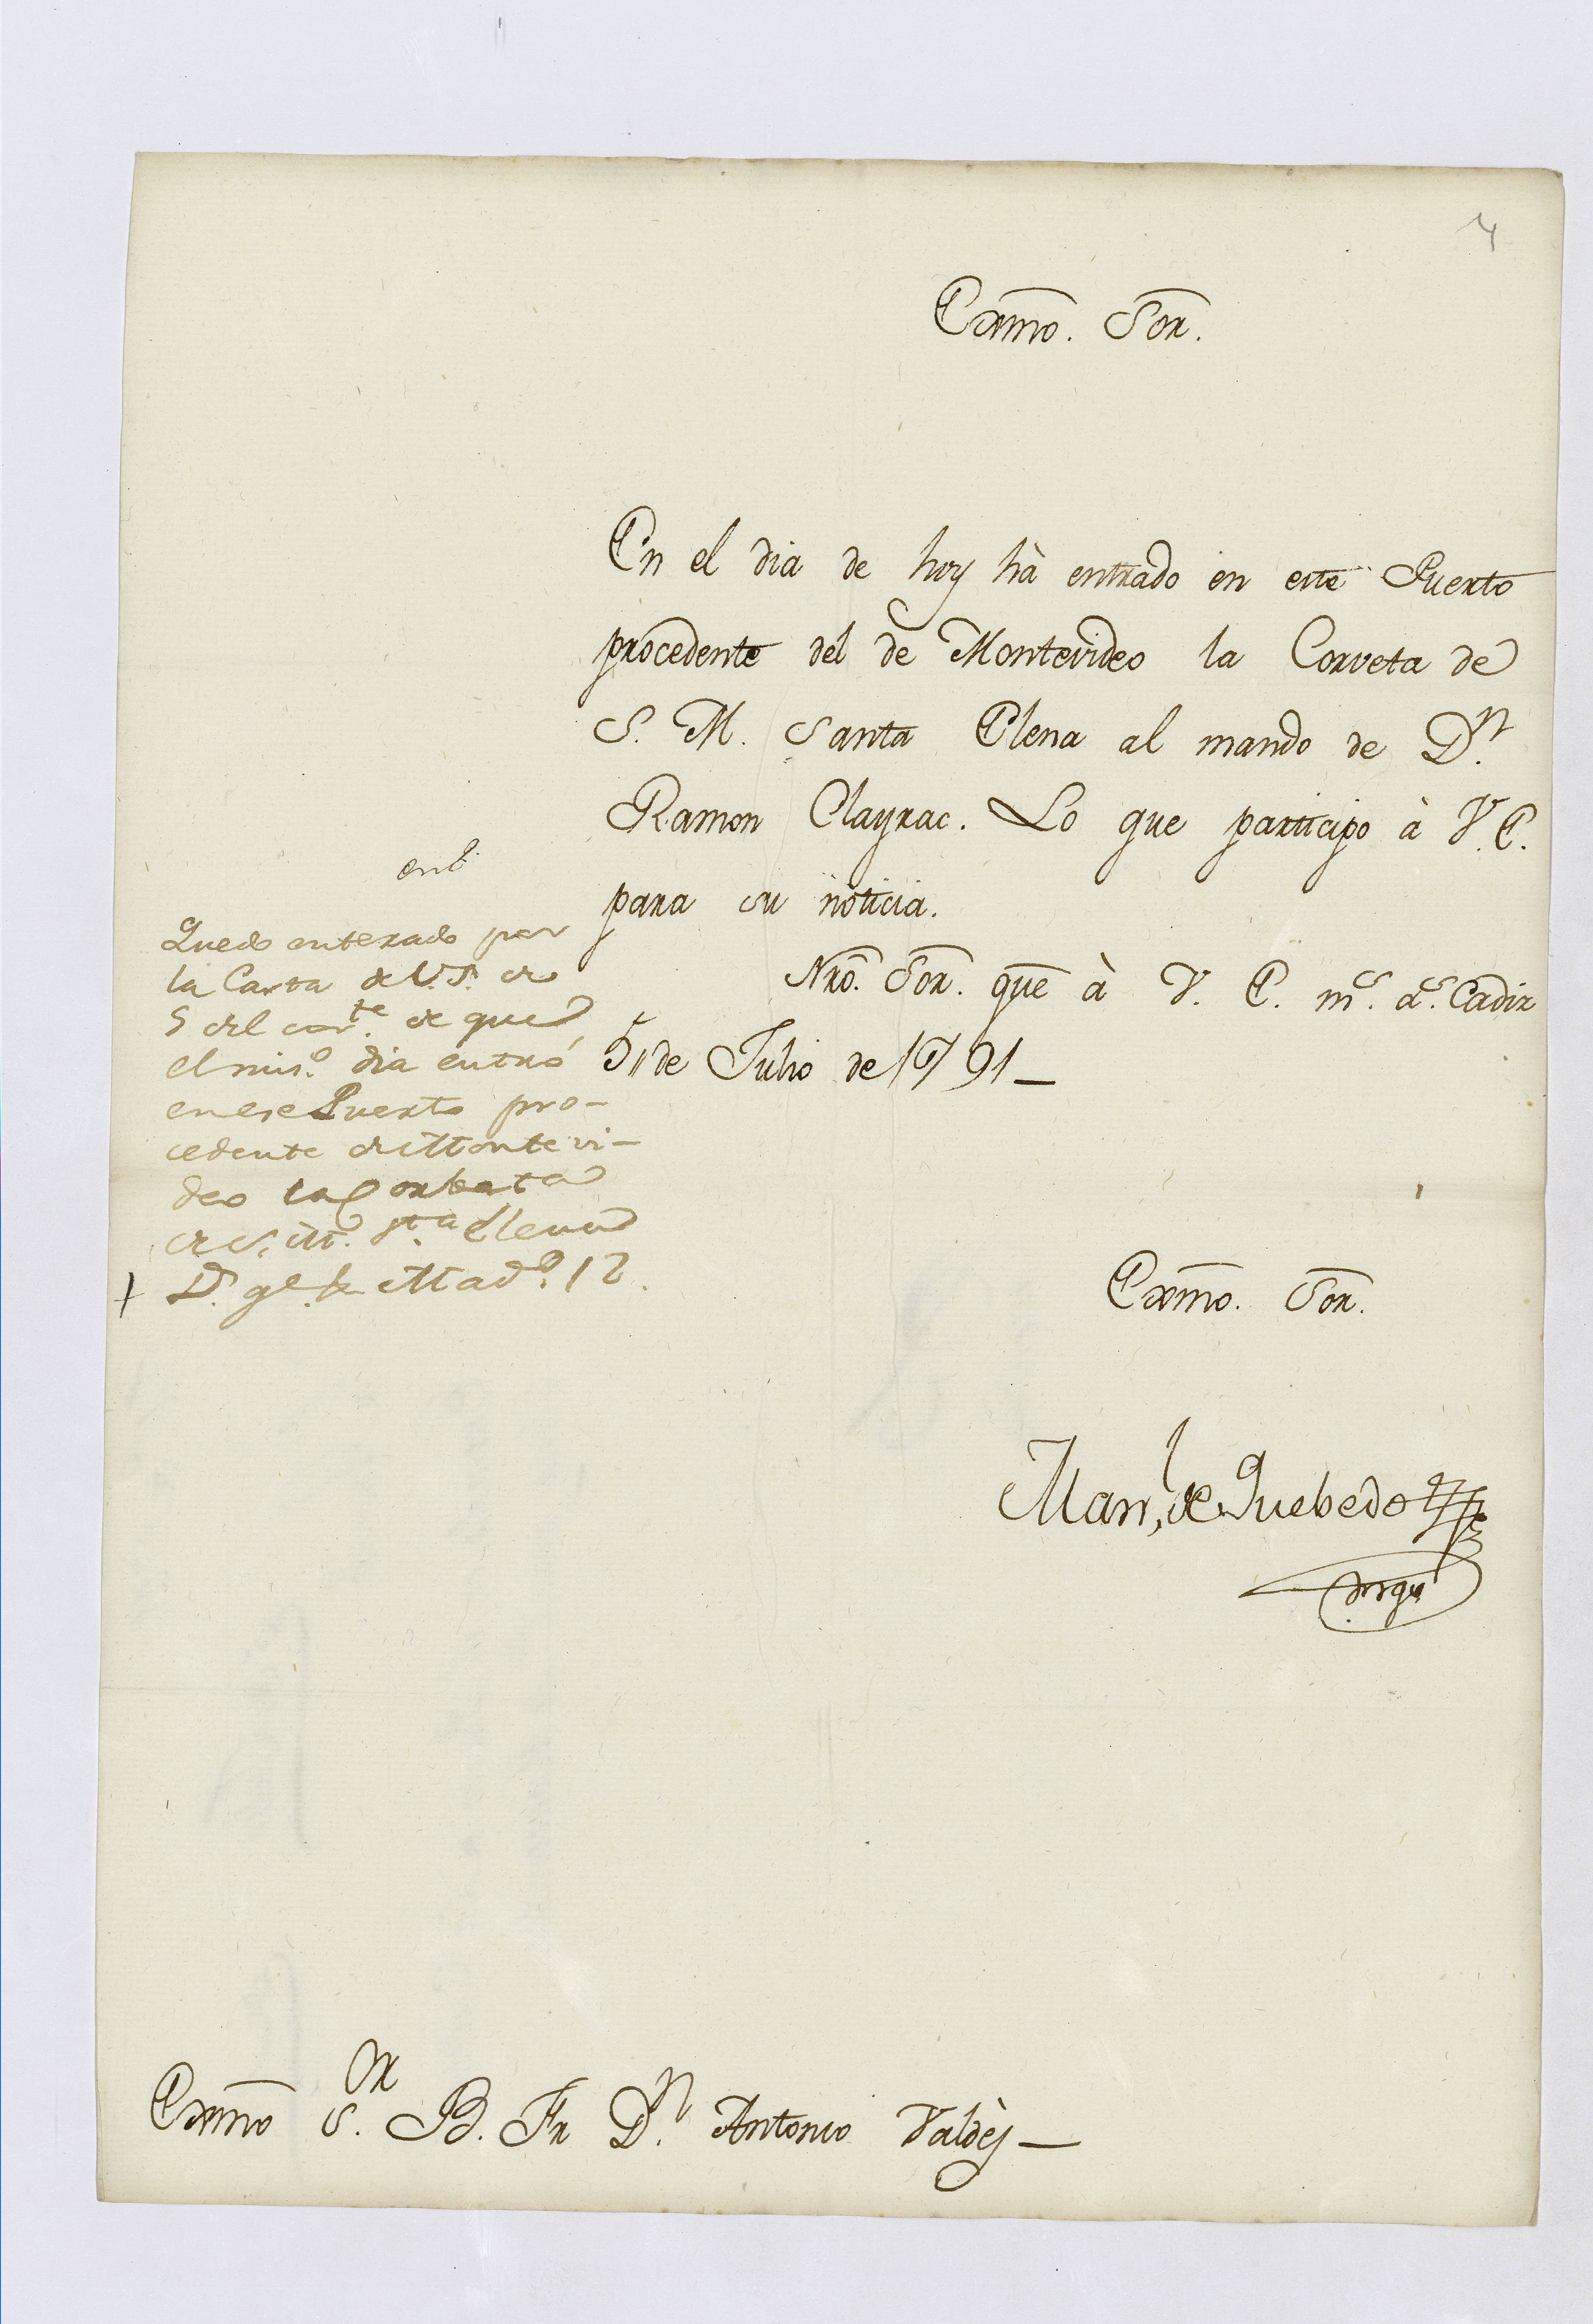 4
Exmo. Sor.
En el dia de hoy hà entrado en este Puerto
procedente del de Montevideo la Corveta de
S. M. Santa Elena al mando de Dn.
Ramon Clayrac. Lo que participo à V. E.
para su noticia.
Nro. Sor. gue à V. E. ms. as. Cadiz
5 de Julio de 1791_
Exmo. Sor.
Manl. de Quebedo
Exmo Sor. B. Fr Dn. Antonio Valdès_
Quedo enterado por
la Carta de V.S. de
5 del corte. de que
el miso. dia entró
en ese Puerto pro-
cedente de Montevi-
deo la Corbeta
de S. M. Sta. Elena
D. ge. &c Mado. 12.